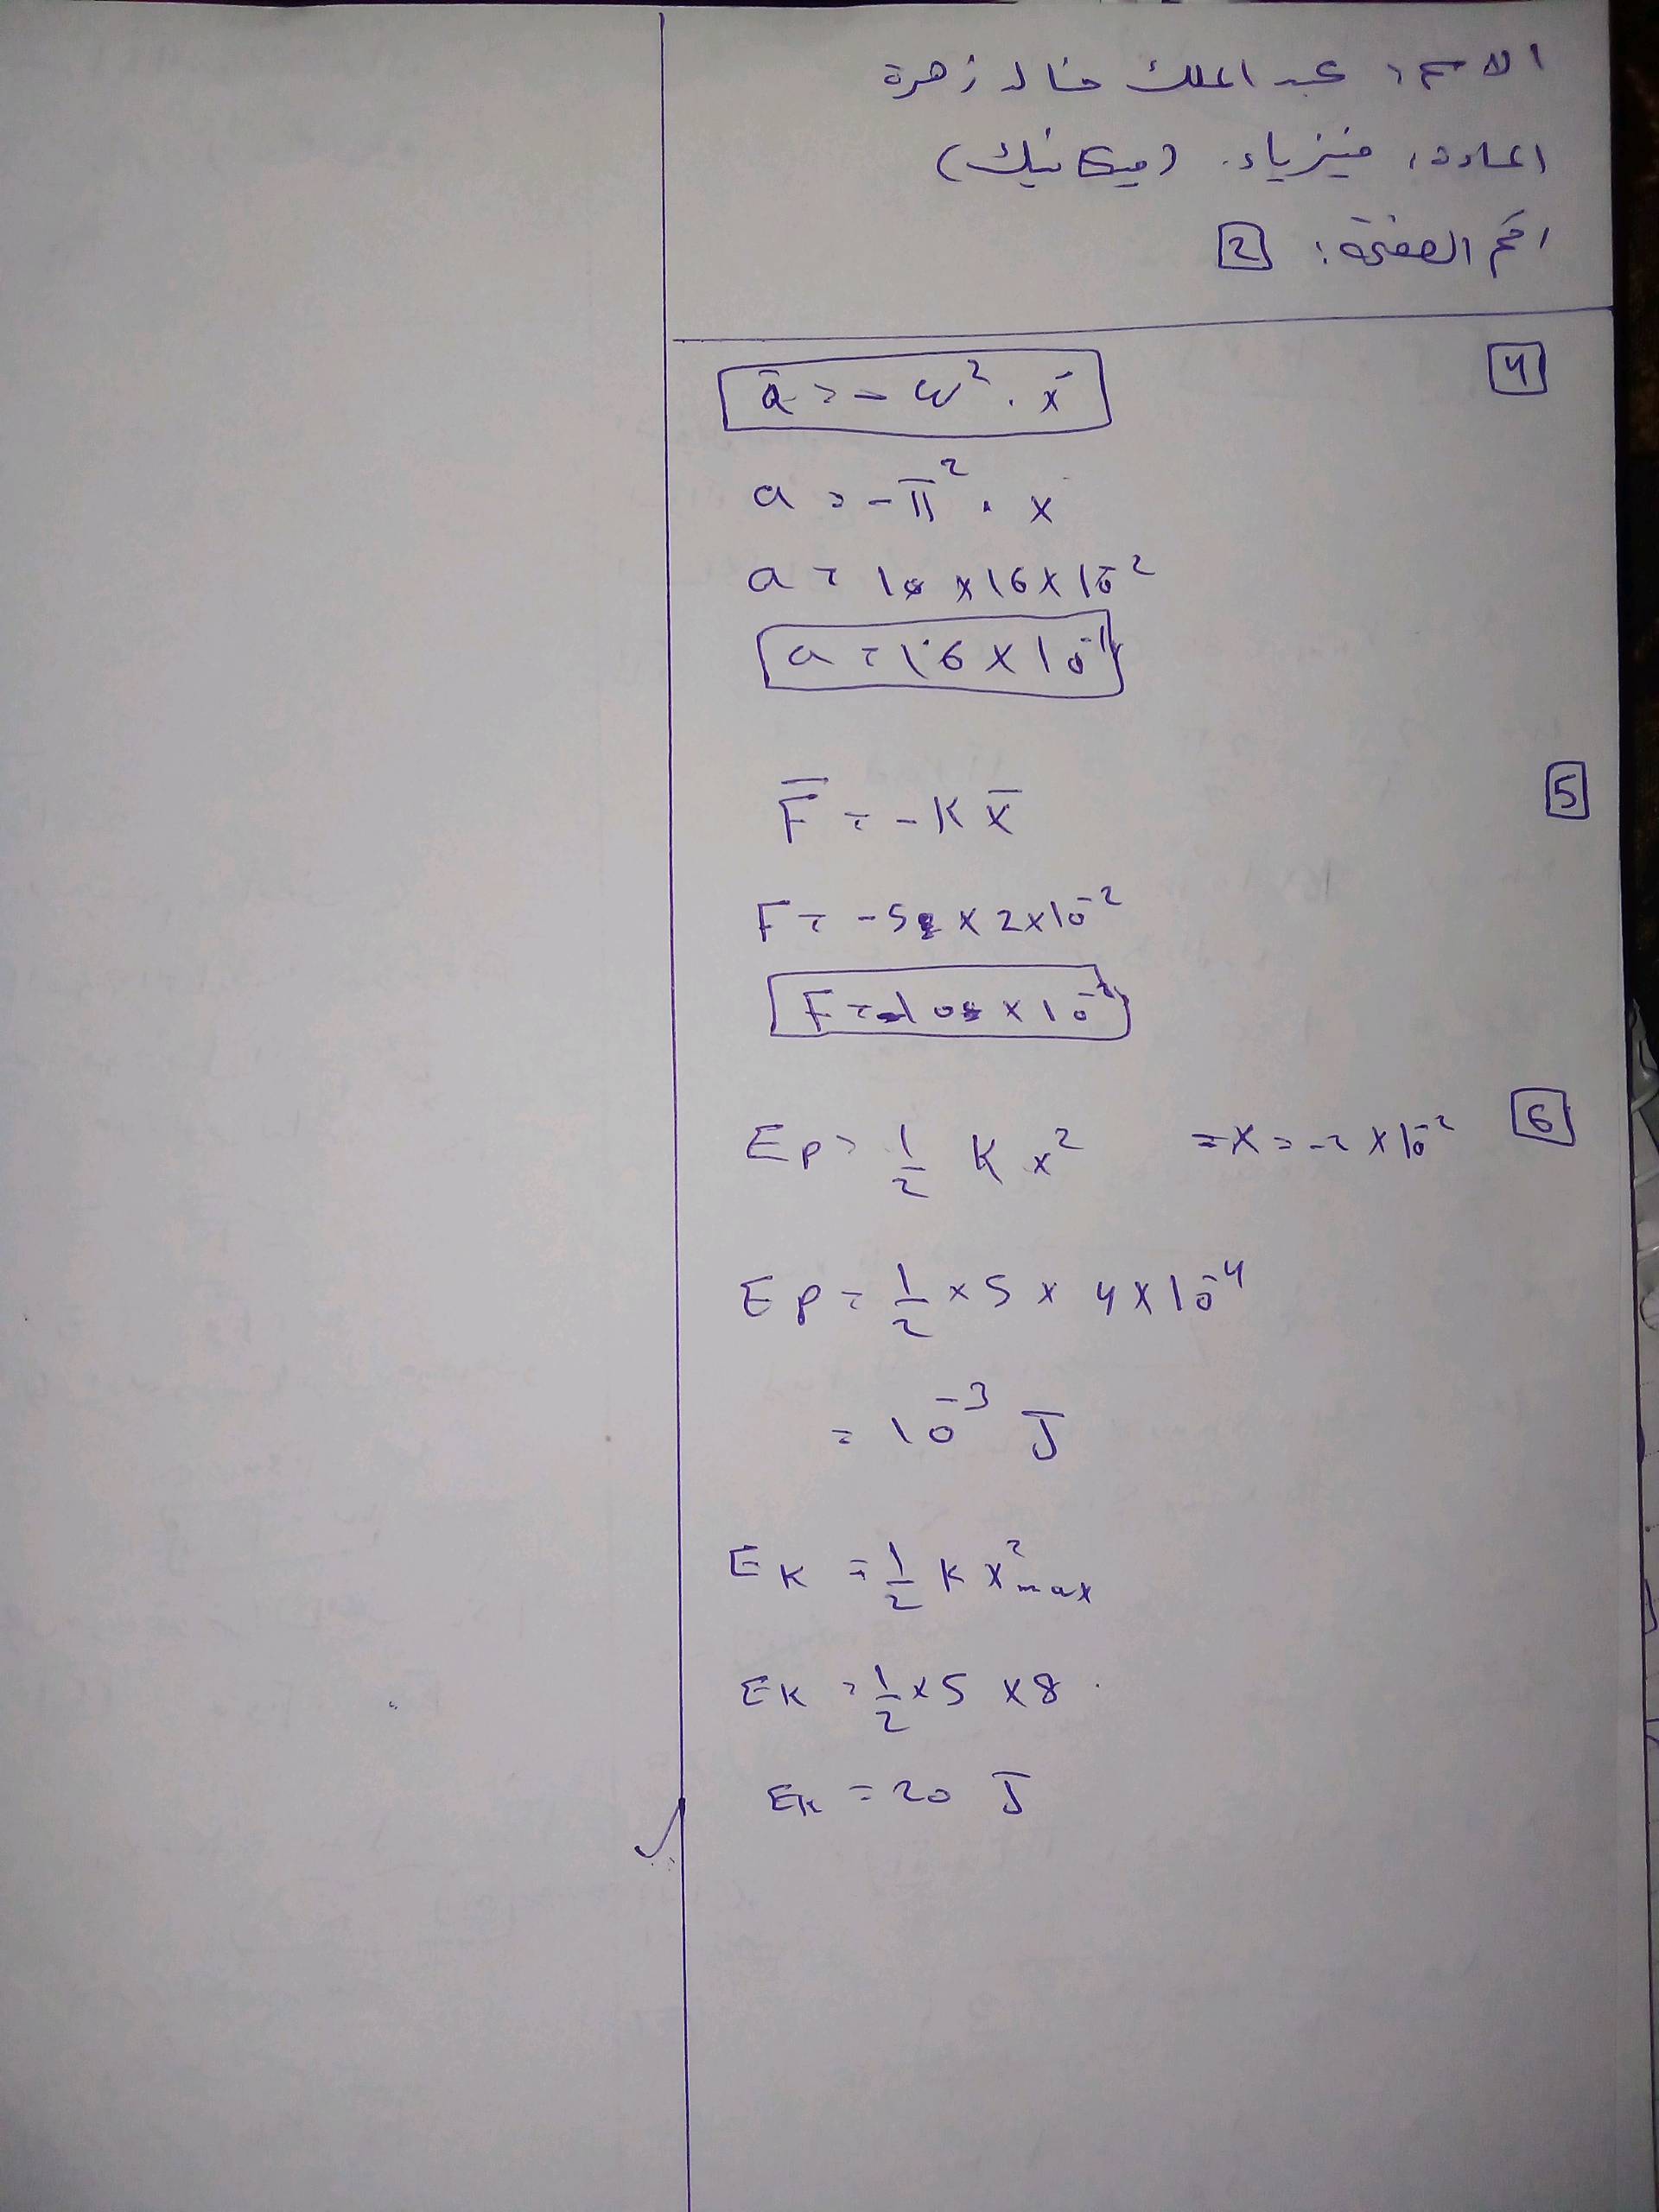 الاسم: عبد الملك خالد زهرة
المادة: فيزياء. (ميكانيك)
رقم الصفحة: 2
4
a̅ = - ω² . x̅
a = - π² . x
a = 10 × 16 × 10⁻²
a = 1.6 × 10⁻¹
5
F̅ = - K x̅
F = -5 × 2×10⁻²
6
Ep = 1/2 K x² = x = -2 × 10⁻²
Ep = 1/2 × 5 × 4 × 10⁻⁴
= 10⁻³ J
EK = 1/2 K x²max
EK = 1/2 × 5 × 8
EK = 20 J